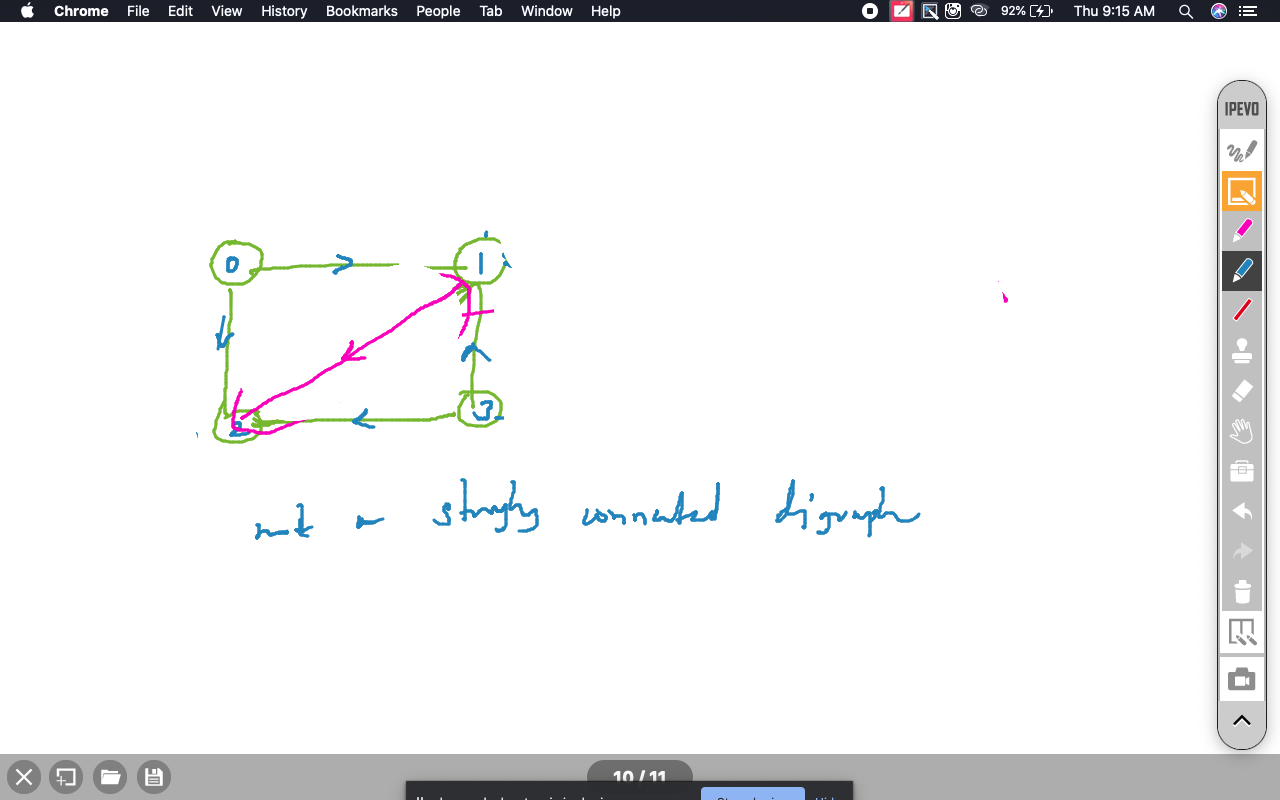 Chrome File Edit View History Bookmarks People Tab Window Help 92% Thu 9:15 AM
IPEVO
0 1
2 3
not a strongly connected digraph
10 / 11